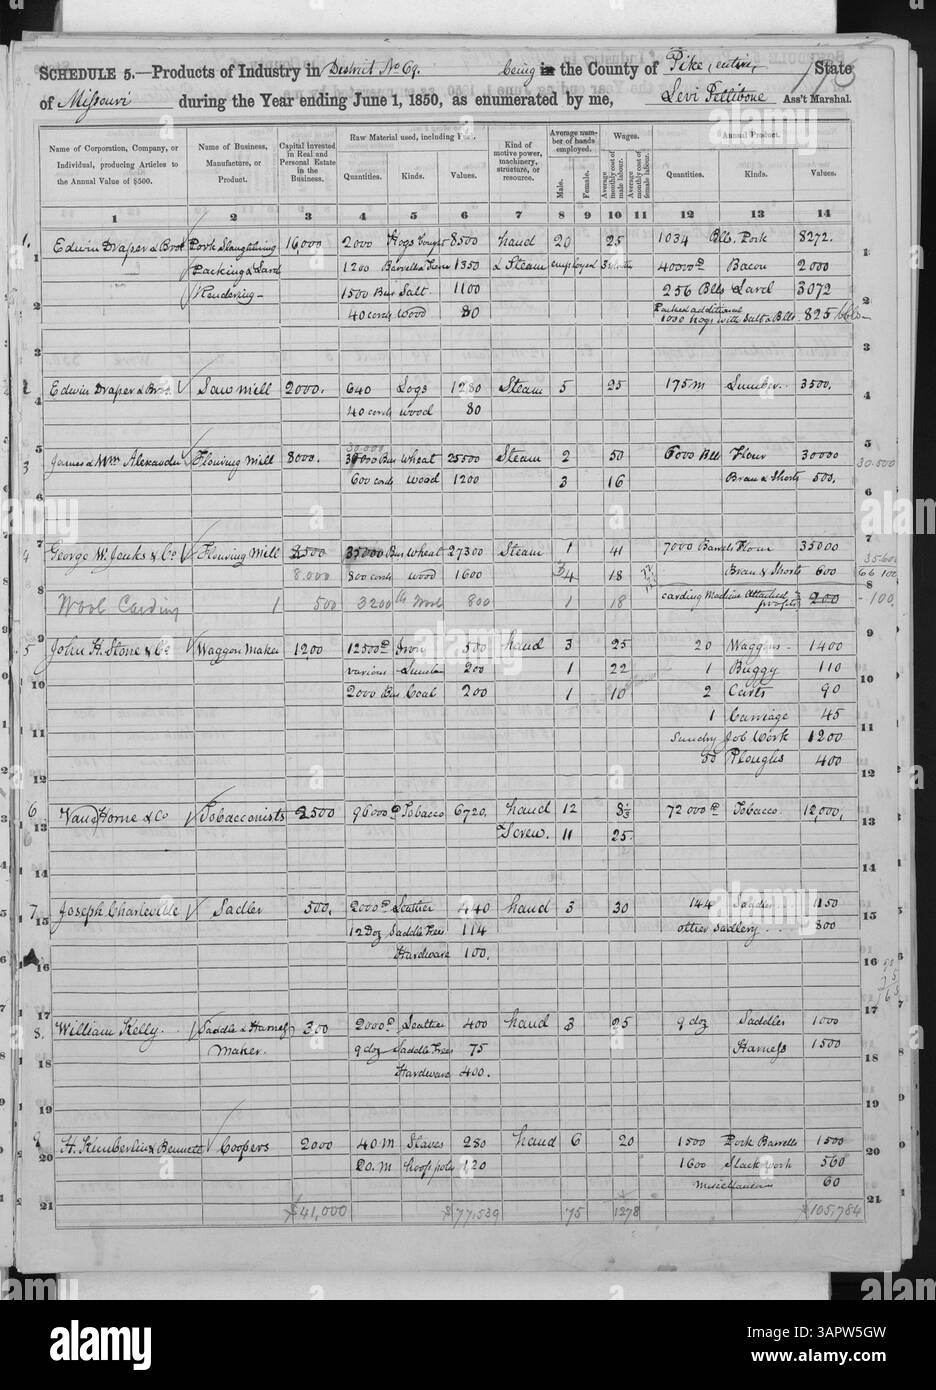 SCHEDULE 5.—Products of Industry in District No 69. being in the County of Pike, entire, State
of Missouri during the Year ending June 1, 1850, as enumerated by me, Levi Pettibone Ass't Marshal.
Name of Corporation, Company, or Individual, producing Articles to the Annual Value of $500.
Name of Business, Manufacture, or Product.
Capital invested in Real and Personal Estate in the Business.
Raw Material used, including Fuel.
Quantities. Kinds. Values.
Kind of motive power, machinery, structure, or resource.
Average number of hands employed.
Male. Female.
Wages.
Average monthly cost of male labour. Average monthly cost of female labour.
Annual Product.
Quantities. Kinds. Values.
1 2 3 4 5 6 7 8 9 10 11 12 13 14
1. Edwin Draper & Bro Pork Slaughtering 16,000 2000 Hogs bought 8500 hand 20 25 1034 Bbls. Pork 8272.
Packing & Lard 1200 Barrells & Tierces 1350 & Steam employed 3 months 40000 lb Bacon 2000
Rendering 1500 Bus Salt. 1100 256 Bbls Lard 3072
40 cords wood 80 Packed additional 1030 hogs with Salt & Bbls 825
2 Edwin Draper & Bro. Saw mill 2000. 640 Logs 1280 Steam 5 25 175 m Lumber. 3500.
40 cords wood 80
3 James & Wm Alexander Flouring Mill 8000. 30.000 Bus Wheat 25500 Steam 2 50 6000 Bbls Flour 30000 30.500
600 cords Wood 1200 3 16 Bran & Shorts 500.
4 George W. Jenks & Co Flouring Mill 8500 35000 Bus Wheat 27300 Steam 1 41 7000 Barrels Flour 35000
8.000 800 cords wood 1600 4 18 Bran & Shorts 600
Wool Carding 1 500 3200 lbs Wool 800 1 18 carding Machine Attached profits 200 -100.
5 John H. Stone & Co Waggon Maker 1200 12500 lb Iron 500 hand 3 25 20 Waggons 1400
various Lumber 200 1 22 1 Buggy 110
2000 Bus Coal 200 1 10 2 Carts 90
1 Carriage 45
Sundry Job Work 1200
50 Ploughs 400
6 Van Horne & Co Tobacconists 3500 96000 lb Tobacco 6720. hand 12 72000 lb Tobacco. 12,000.
& Screw. 11 25.
7 Joseph Charleville Sadler 500. 2000 lb Leather 440 hand 3 30 144 Saydles 1150
12 Doz Saddle Trees 114 other Sadlery 800
Hardware 100.
8. William Kelly Saddle & Harness 300 2000 lb Leather 400 hand 3 25 9 doz Saddles 1000
Maker. 9 doz Saddle Trees 75 Harness 1500
Hardware 400.
9 H. Kimberlin & Bennett Coopers 2000 40 m Staves 280 hand 6 20 1500 Pork Barrells 1500
20. m hoop poles 120 1600 Slack work 560
Miscellaneous 60
$41,000 $77,539 75 1278 $105,784
alamy
Image ID: 3APW5GW
www.alamy.com